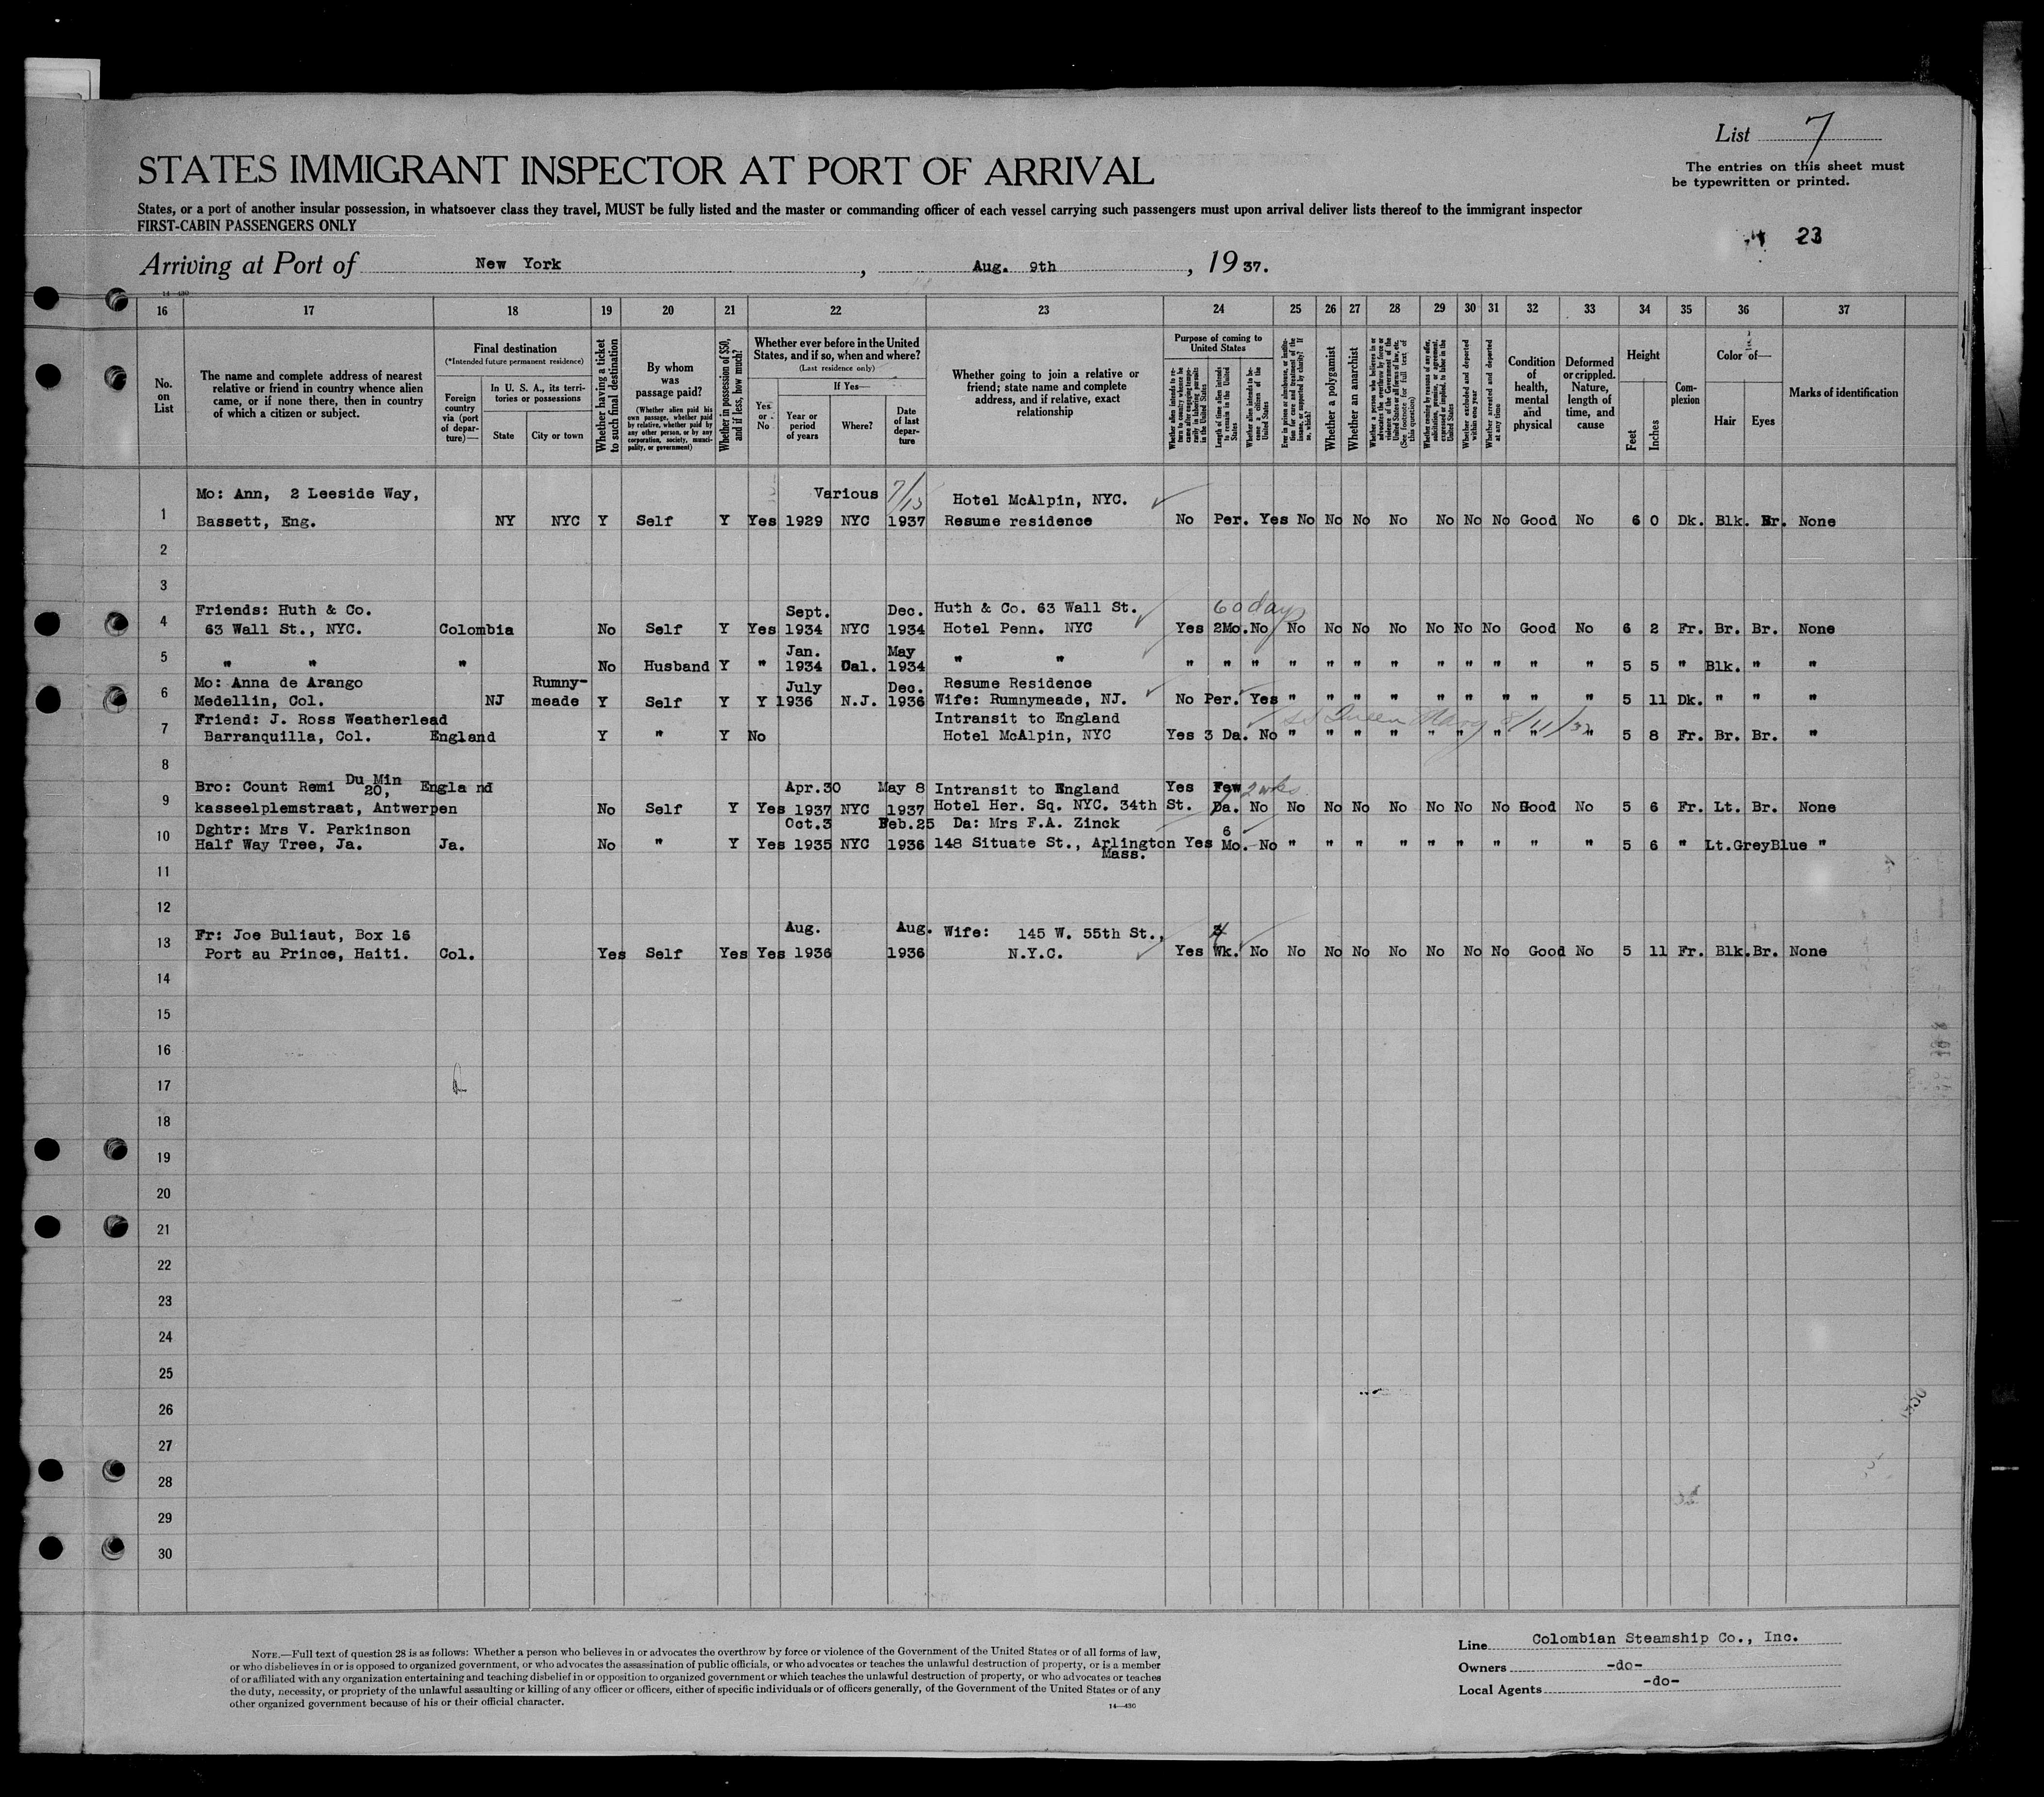 List 7
The entries on this sheet must
be typewritten or printed.
STATES IMMIGRANT INSPECTOR AT PORT OF ARRIVAL
States, or a port of another insular possession, in whatsoever class they travel, MUST be fully listed and the master or commanding officer of each vessel carrying such passengers must upon arrival deliver lists thereof to the immigrant inspector
FIRST-CABIN PASSENGERS ONLY
23
Arriving at Port of New York, Aug. 9th, 1937.
14-430
16 17 18 19 20 21 22 23 24 25 26 27 28 29 30 31 32 33 34 35 36 37
No. on List
The name and complete address of nearest relative or friend in country whence alien came, or if none there, then in country of which a citizen or subject.
Final destination
(*Intended future permanent residence)
Foreign country via (port of departure)—
In U. S. A., its territories or possessions
State
City or town
Whether having a ticket to such final destination
By whom was passage paid?
(Whether alien paid his own passage, whether paid by relative, whether paid by any other person, or by any corporation, society, municipality, or government)
Whether in possession of $50, and if less, how much?
Whether ever before in the United States, and if so, when and where?
(Last residence only)
Yes or No
If Yes—
Year or period of years
Where?
Date of last departure
Whether going to join a relative or friend; state name and complete address, and if relative, exact relationship
Purpose of coming to United States
Whether alien intends to return to country whence he came after engaging temporarily in laboring pursuits in the United States
Length of time alien intends to remain in the United States
Whether alien intends to become a citizen of the United States
Ever in prison or almshouse, or institution for care and treatment of the insane, or supported by charity? If so, which?
Whether a polygamist
Whether an anarchist
Whether a person who believes in or advocates the overthrow by force or violence of the Government of the United States or all forms of law, etc. (See footnote for full text of this question)
Whether coming by reasons of any offer, solicitation, promise, or agreement, expressed or implied, to labor in the United States
Whether excluded and deported within one year
Whether arrested and deported at any time
Condition of health, mental and physical
Deformed or crippled. Nature, length of time, and cause
Height
Feet
Inches
Complexion
Color of—
Hair
Eyes
Marks of identification
Mo: Ann, 2 Leeside Way, Various 7/15 Hotel McAlpin, NYC.
1 Bassett, Eng. NY NYC Y Self Y Yes 1929 NYC 1937 Resume residence No Per. Yes No No No No No No No Good No 6 0 Dk. Blk. Br. None
2
3
Friends: Huth & Co. Sept. Dec. Huth & Co. 63 Wall St. 60 days
4 63 Wall St., NYC. Colombia No Self Y Yes 1934 NYC 1934 Hotel Penn. NYC Yes 2Mo. No No No No No No No No Good No 6 2 Fr. Br. Br. None
Jan. May
5 " " " No Husband Y " 1934 Cal. 1934 " " " " " " " " " " " " " " 5 5 " Blk. " "
Mo: Anna de Arango Rumny- July Dec. Resume Residence
6 Medellin, Col. NJ meade Y Self Y Y 1936 N.J. 1936 Wife: Rumnymeade, NJ. No Per. Yes " " " " " " " " " 5 11 Dk. " " "
Friend: J. Ross Weatherlead Intransit to England SS Queen Mary 8/11/37
7 Barranquilla, Col. England Y " Y No Hotel McAlpin, NYC Yes 3 Da. No " " " " " " " " " 5 8 Fr. Br. Br. "
8
Bro: Count Remi Du Min 20, England Apr.30 May 8 Intransit to England Yes Few 2 wks
9 kasseelplemstraat, Antwerpen No Self Y Yes 1937 NYC 1937 Hotel Her. Sq. NYC. 34th St. Da. No No No No No No No No Good No 5 6 Fr. Lt. Br. None
Dghtr: Mrs V. Parkinson Oct.3 Feb.25 Da: Mrs F.A. Zinck 6
10 Half Way Tree, Ja. Ja. No " Y Yes 1935 NYC 1936 148 Situate St., Arlington Yes Mo. No " " " " " " " " " 5 6 " Lt.Grey Blue "
Mass.
11
12
Fr: Joe Buliaut, Box 16 Aug. Aug. Wife: 145 W. 55th St., 4
13 Port au Prince, Haiti. Col. Yes Self Yes Yes 1936 1936 N.Y.C. Yes Wk. No No No No No No No No Good No 5 11 Fr. Blk. Br. None
14
15
16
17
18
19
20
21
22
23
24
25
26
27
28
29
30
NOTE.—Full text of question 28 is as follows: Whether a person who believes in or advocates the overthrow by force or violence of the Government of the United States or of all forms of law,
or who disbelieves in or is opposed to organized government, or who advocates the assassination of public officials, or who advocates or teaches the unlawful destruction of property, or is a member
of or affiliated with any organization entertaining and teaching disbelief in or opposition to organized government or which teaches the unlawful destruction of property, or who advocates or teaches
the duty, necessity, or propriety of the unlawful assaulting or killing of any officer or officers, either of specific individuals or of officers generally, of the Government of the United States or of any
other organized government because of his or their official character.
14—430
Line Colombian Steamship Co., Inc.
Owners -do-
Local Agents -do-